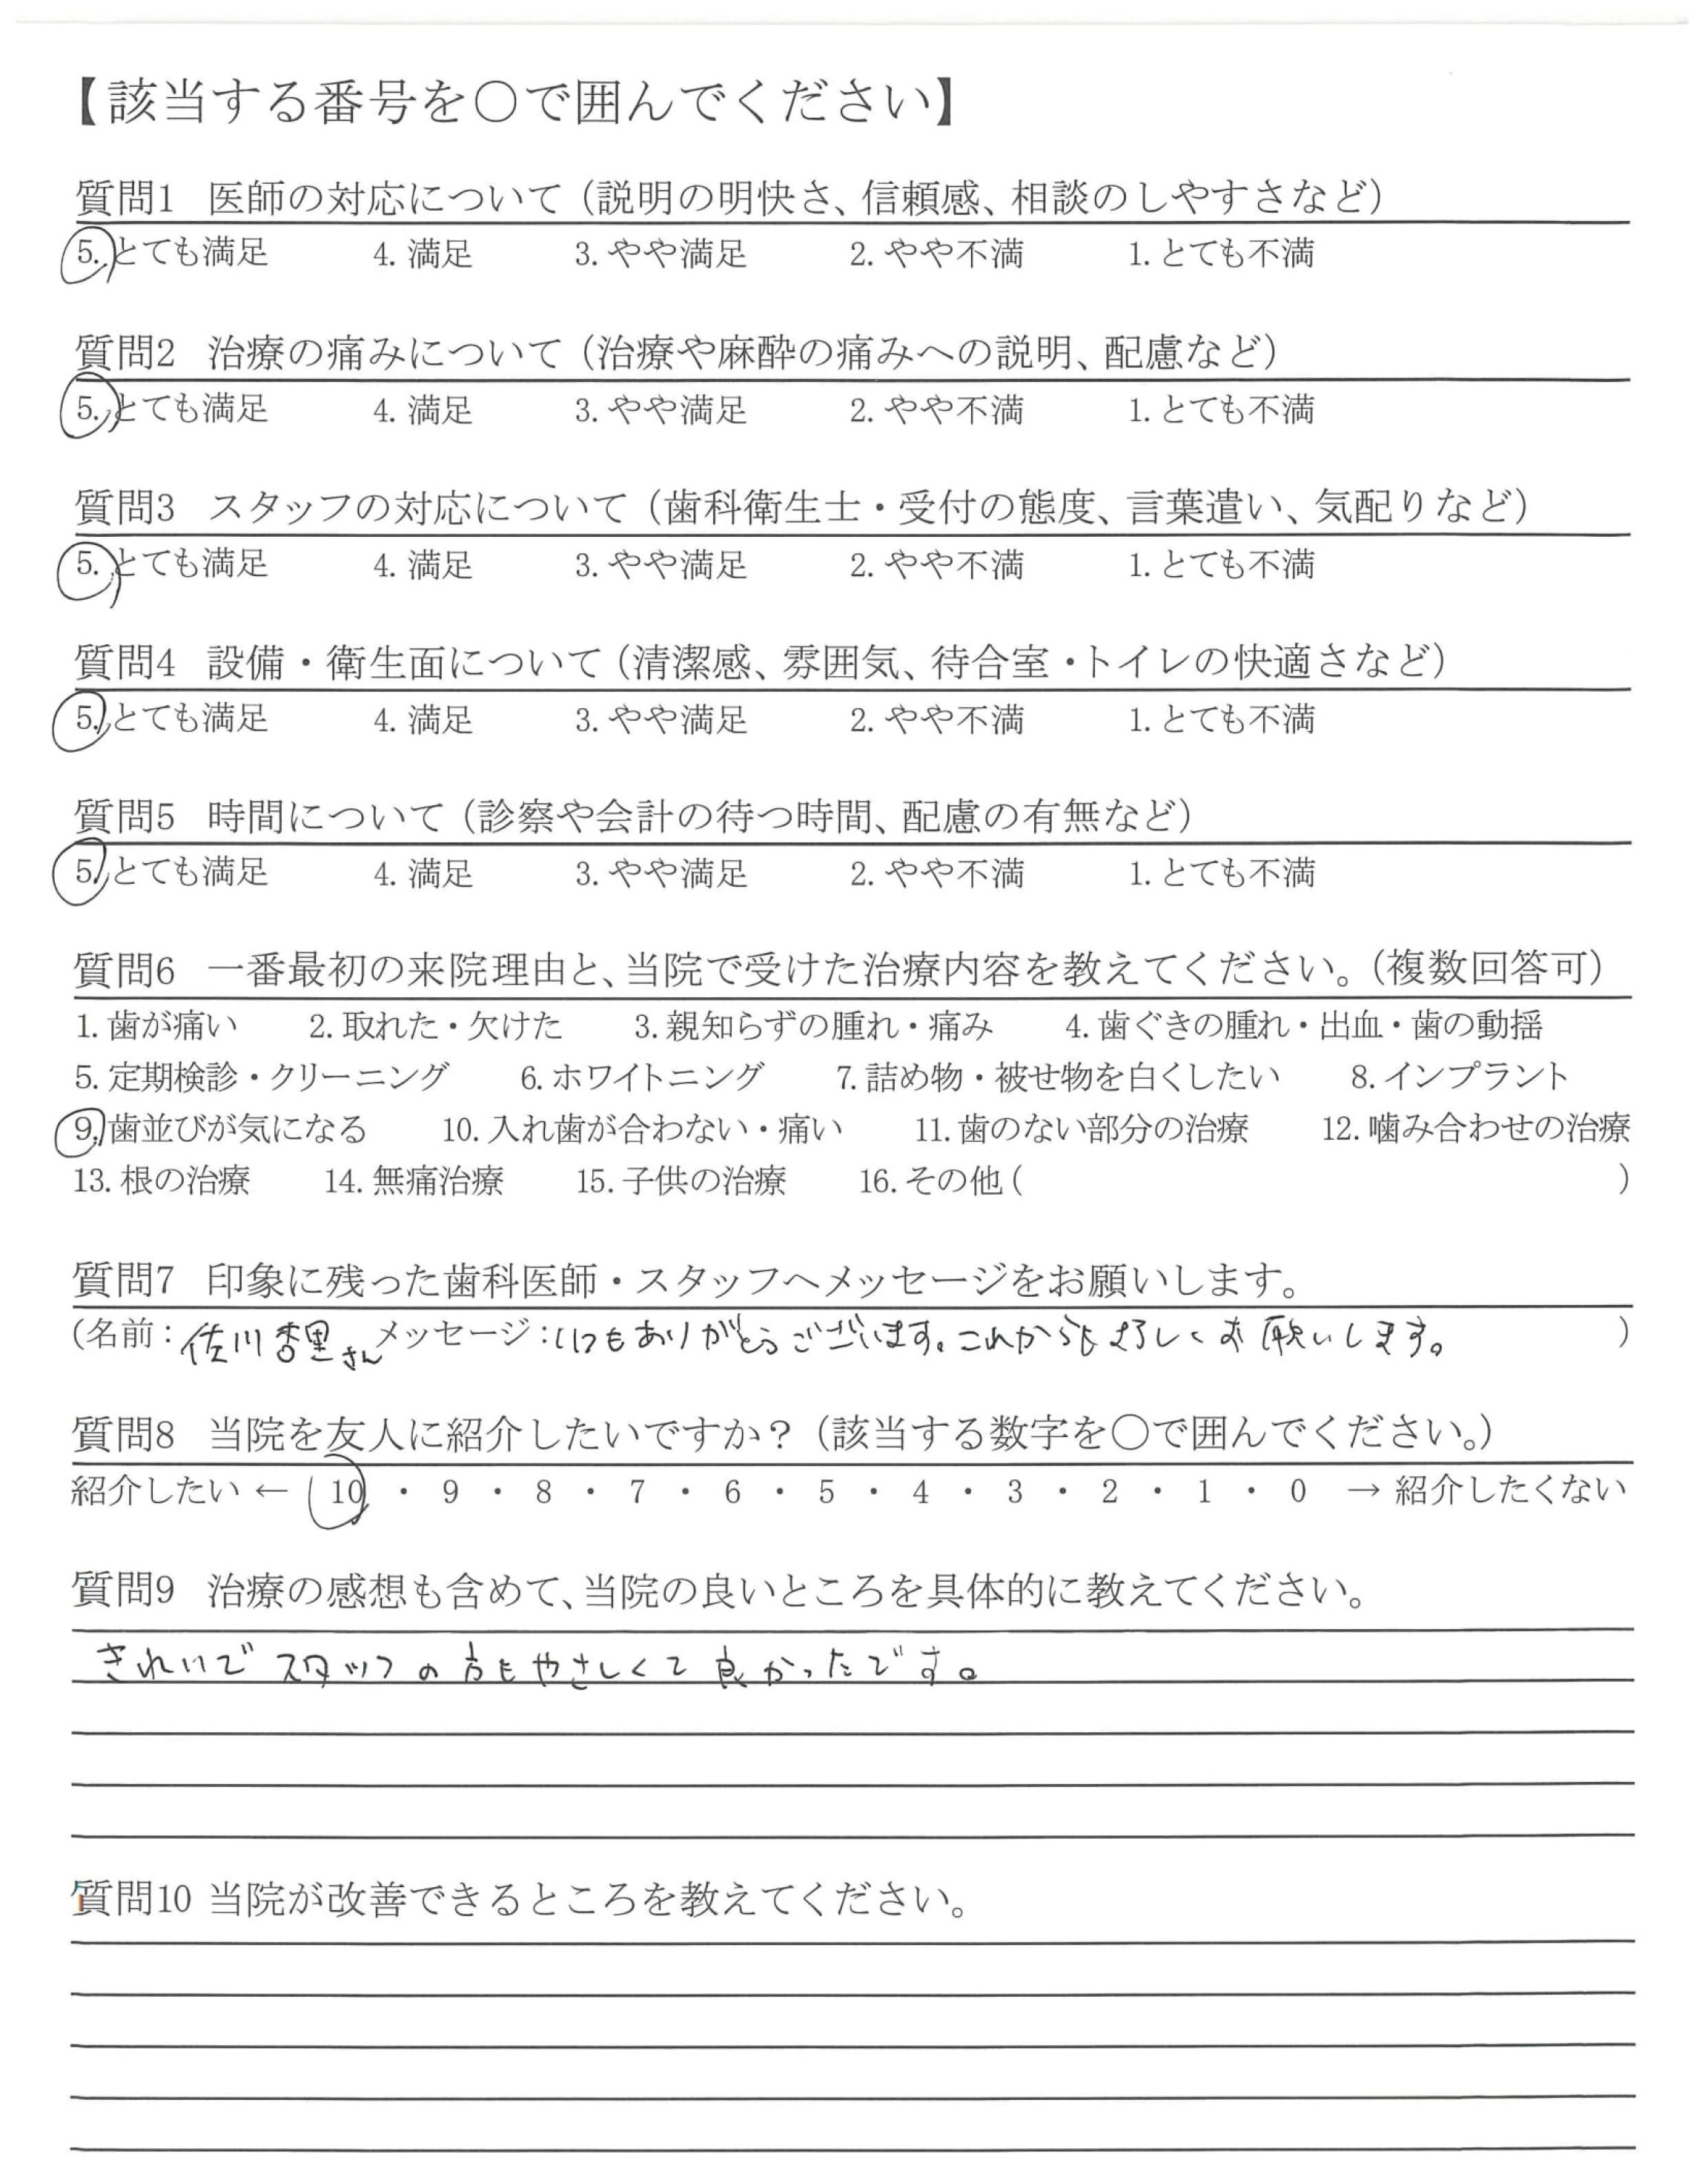 【該当する番号を○で囲んでください】
質問1 医師の対応について（説明の明快さ、信頼感、相談のしやすさなど）
5. とても満足 4. 満足 3. やや満足 2. やや不満 1. とても不満
質問2 治療の痛みについて（治療や麻酔の痛みへの説明、配慮など）
5. とても満足 4. 満足 3. やや満足 2. やや不満 1. とても不満
質問3 スタッフの対応について（歯科衛生士・受付の態度、言葉遣い、気配りなど）
5. とても満足 4. 満足 3. やや満足 2. やや不満 1. とても不満
質問4 設備・衛生面について（清潔感、雰囲気、待合室・トイレの快適さなど）
5. とても満足 4. 満足 3. やや満足 2. やや不満 1. とても不満
質問5 時間について（診察や会計の待つ時間、配慮の有無など）
5. とても満足 4. 満足 3. やや満足 2. やや不満 1. とても不満
質問6 一番最初の来院理由と、当院で受けた治療内容を教えてください。（複数回答可）
1. 歯が痛い 2. 取れた・欠けた 3. 親知らずの腫れ・痛み 4. 歯ぐきの腫れ・出血・歯の動揺
5. 定期検診・クリーニング 6. ホワイトニング 7. 詰め物・被せ物を白くしたい 8. インプラント
9. 歯並びが気になる 10. 入れ歯が合わない・痛い 11. 歯のない部分の治療 12. 噛み合わせの治療
13. 根の治療 14. 無痛治療 15. 子供の治療 16. その他 ( )
質問7 印象に残った歯科医師・スタッフへメッセージをお願いします。
（名前：佐川杏里さん メッセージ：いつもありがとうございます。これからもよろしくお願いします。）
質問8 当院を友人に紹介したいですか？（該当する数字を○で囲んでください。）
紹介したい ← 10 ・ 9 ・ 8 ・ 7 ・ 6 ・ 5 ・ 4 ・ 3 ・ 2 ・ 1 ・ 0 → 紹介したくない
質問9 治療の感想も含めて、当院の良いところを具体的に教えてください。
きれいでスタッフの方もやさしくて良かったです。
質問10 当院が改善できるところを教えてください。